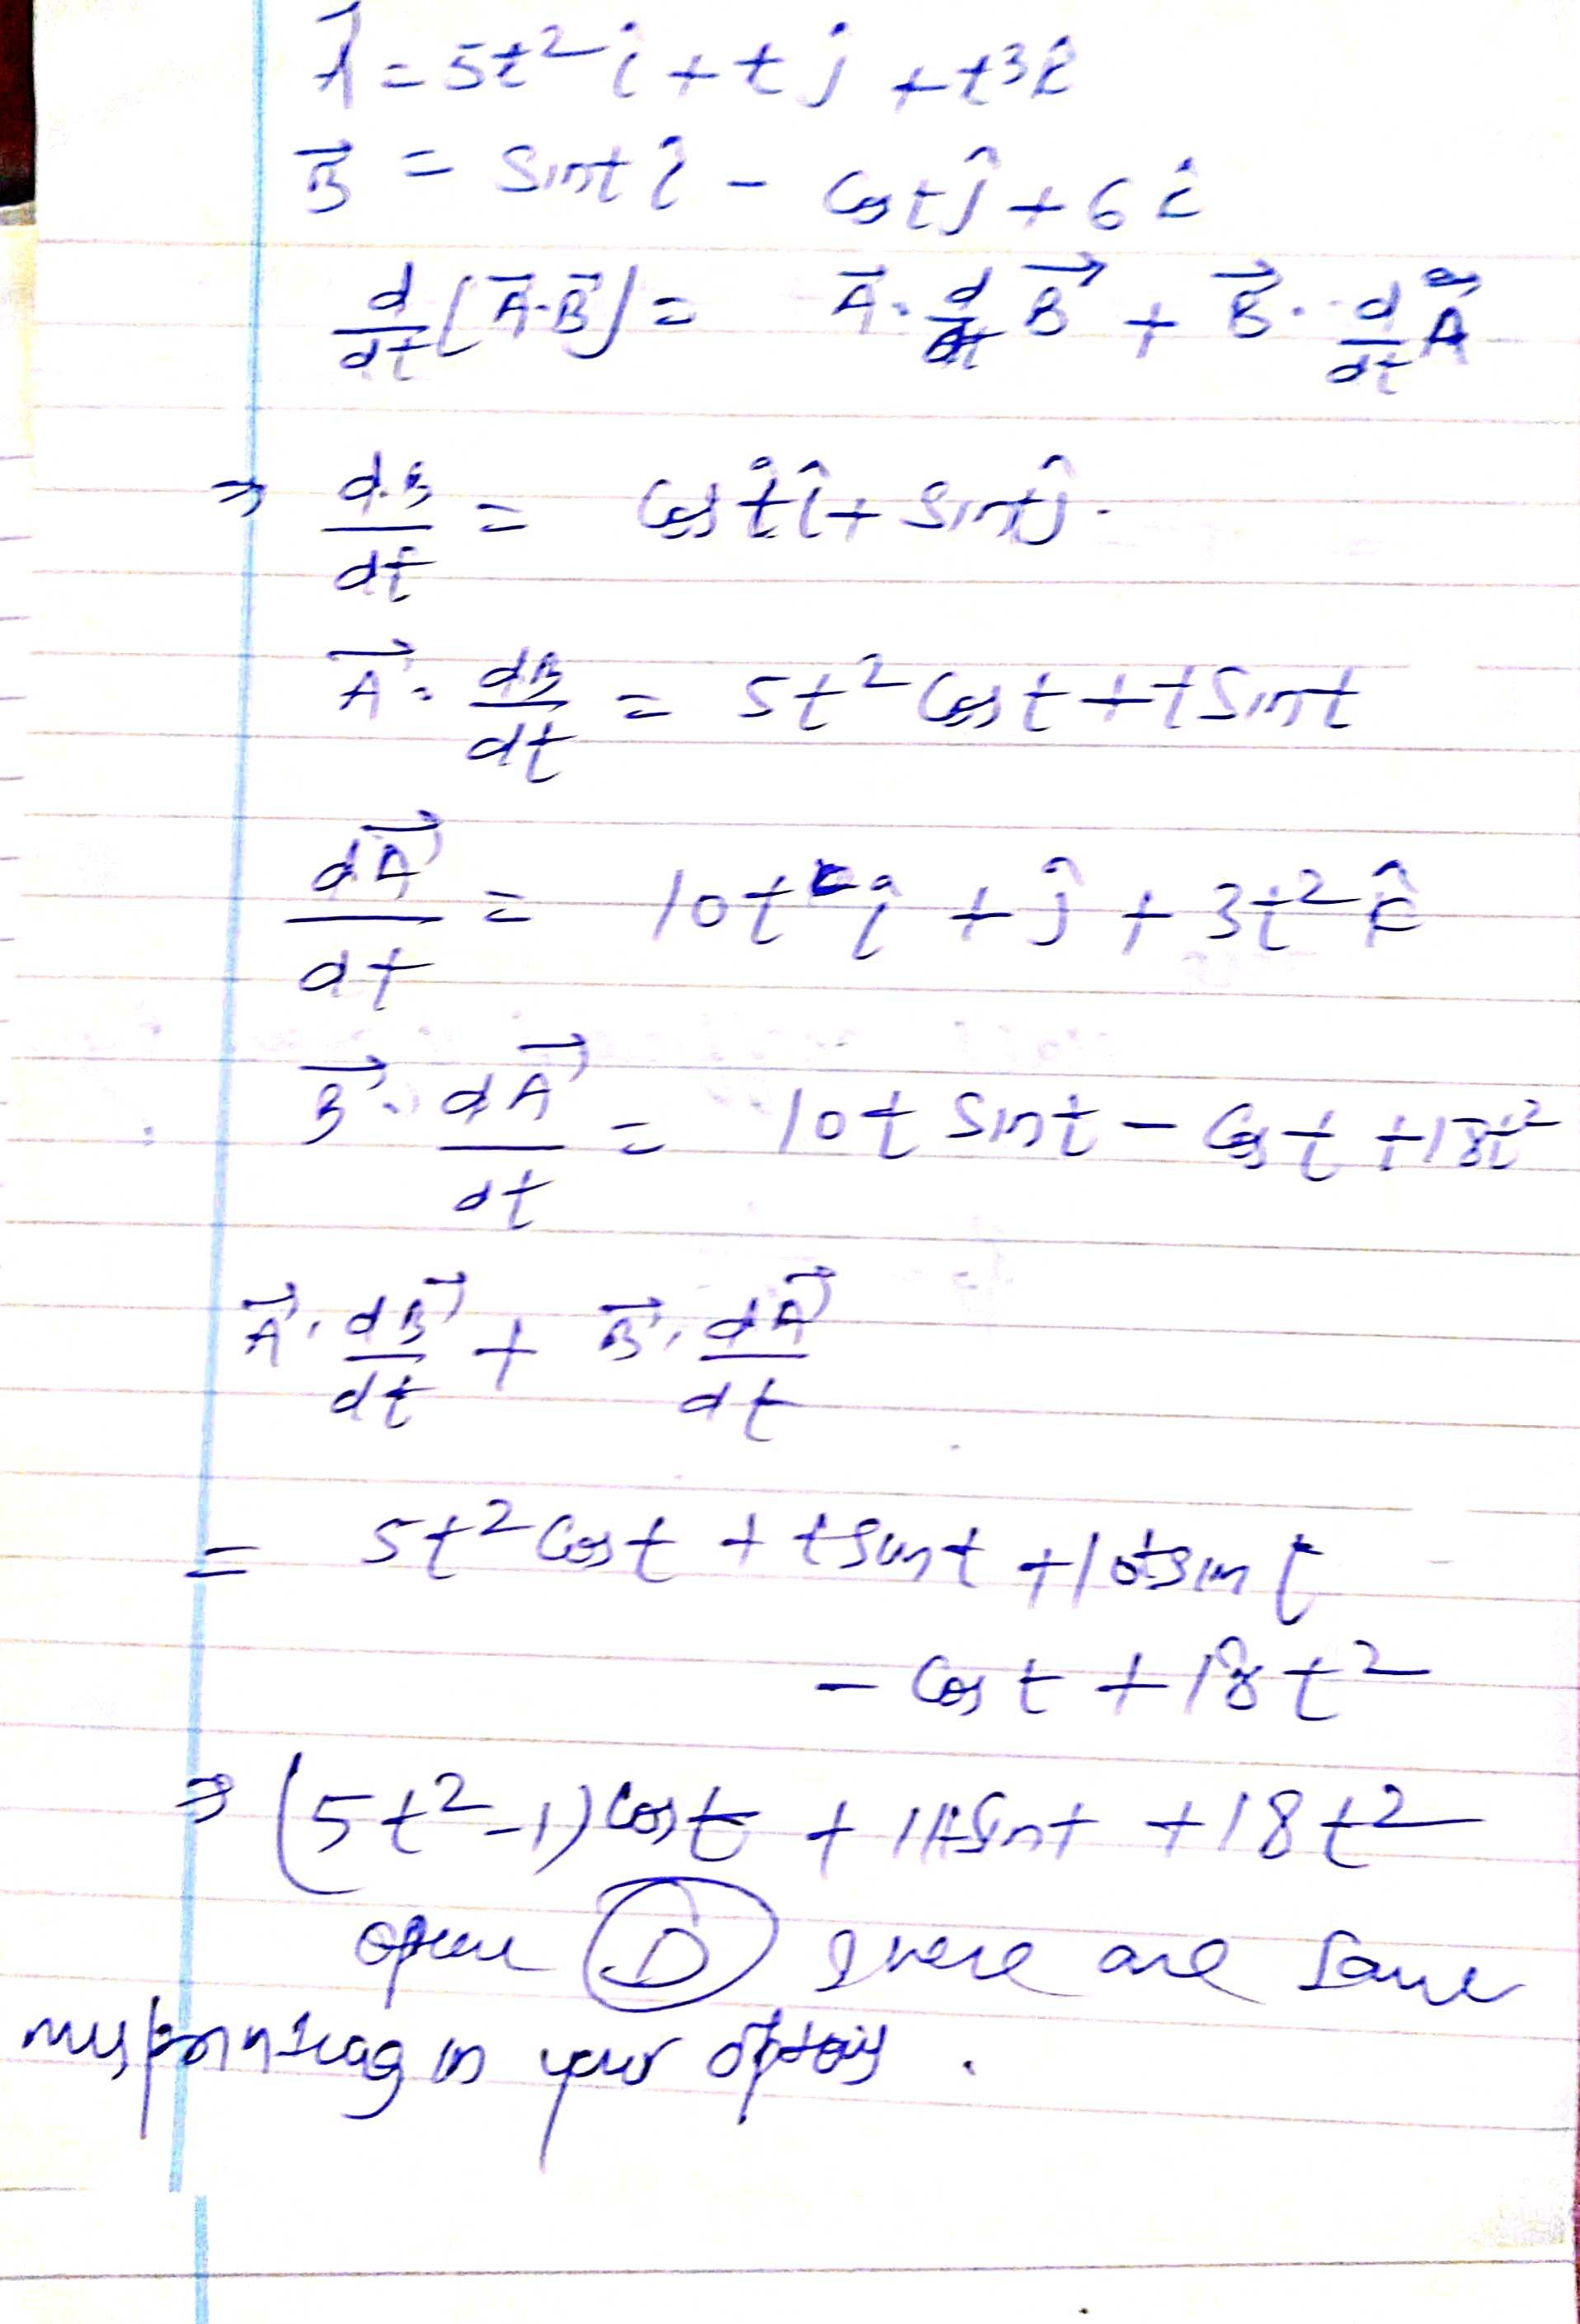 A⃗ = 5t² i + t j + t³ k̂
B⃗ = Sint î - Cost ĵ + 6 k̂
d/dt [A⃗·B⃗] = A⃗ · d/dt B⃗ + B⃗ · d/dt A⃗
⇒ dB/dt = Cost î + Sint ĵ.
A⃗ · dB/dt = 5t² Cost + t Sint
dA⃗/dt = 10t i + ĵ + 3t² k̂
B⃗ · dA⃗/dt = 10t Sint - Cost + 18t²
A⃗ · dB⃗/dt + B⃗ · dA⃗/dt
= 5t² Cost + t Sint + 10t sin t
- Cost + 18t²
⇒ (5t² - 1) Cost + 11t Sint + 18t²
D are
in your